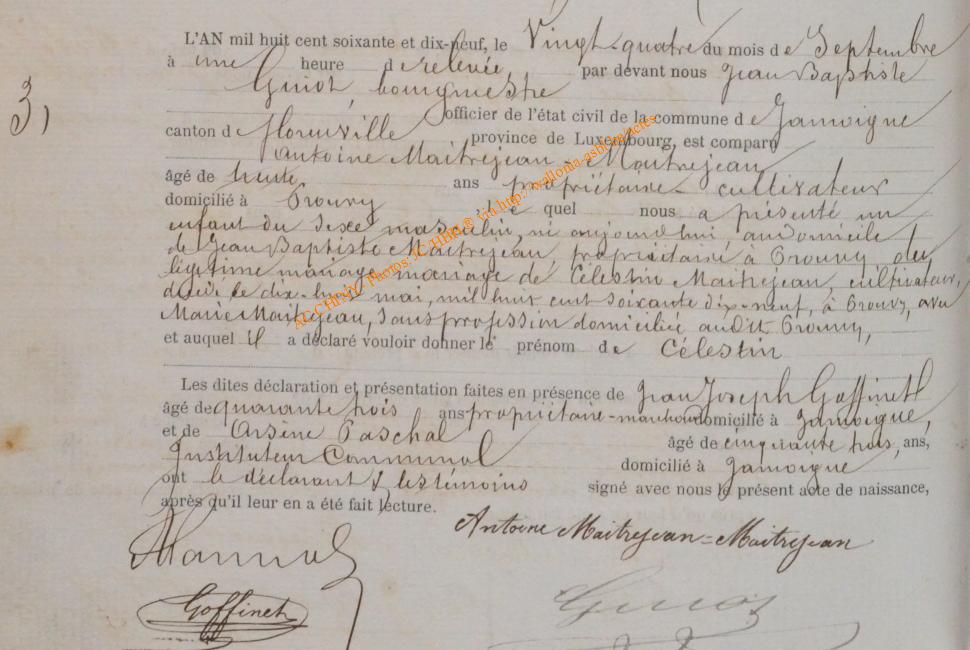 L'AN mil huit cent soixante et dix-neuf, le Vingt-quatre du mois de Septembre
à une heure de relevée, par devant nous Jean Baptiste
Guiot, bourgmestre
officier de l'état civil de la commune de Jamoigne
canton de Florenville province de Luxembourg, est comparu
Antoine Maitrejean-Maitrejean
âgé de trente ans propriétaire-cultivateur
domicilié à Prouvy le quel nous a présenté un
3)
enfant du sexe masculin, né aujourd'hui, au domicile
de Jean Baptiste Maitrejean, propriétaire à Prouvy du
légitime mariage mariage de Célestin Maitrejean, cultivateur,
décédé le dix-huit mai, mil huit cent soixante dix-neuf, à Prouvy, avec
Marie Maitrejean, sans profession domiciliée audit Prouvy,
et auquel il a déclaré vouloir donner le prénom de Célestin
Les dites déclaration et présentation faites en présence de Jean Joseph Goffinet
âgé de quarante trois ans propriétaire-marchand domicilié à Jamoigne,
et de Arsène Paschal âgé de cinquante trois, ans,
Instituteur Communal domicilié à Jamoigne
ont le déclarant & les témoins signé avec nous le présent acte de naissance,
après qu'il leur en a été fait lecture.
Antoine Maitrejean=Maitrejean
Goffinet
Guiot